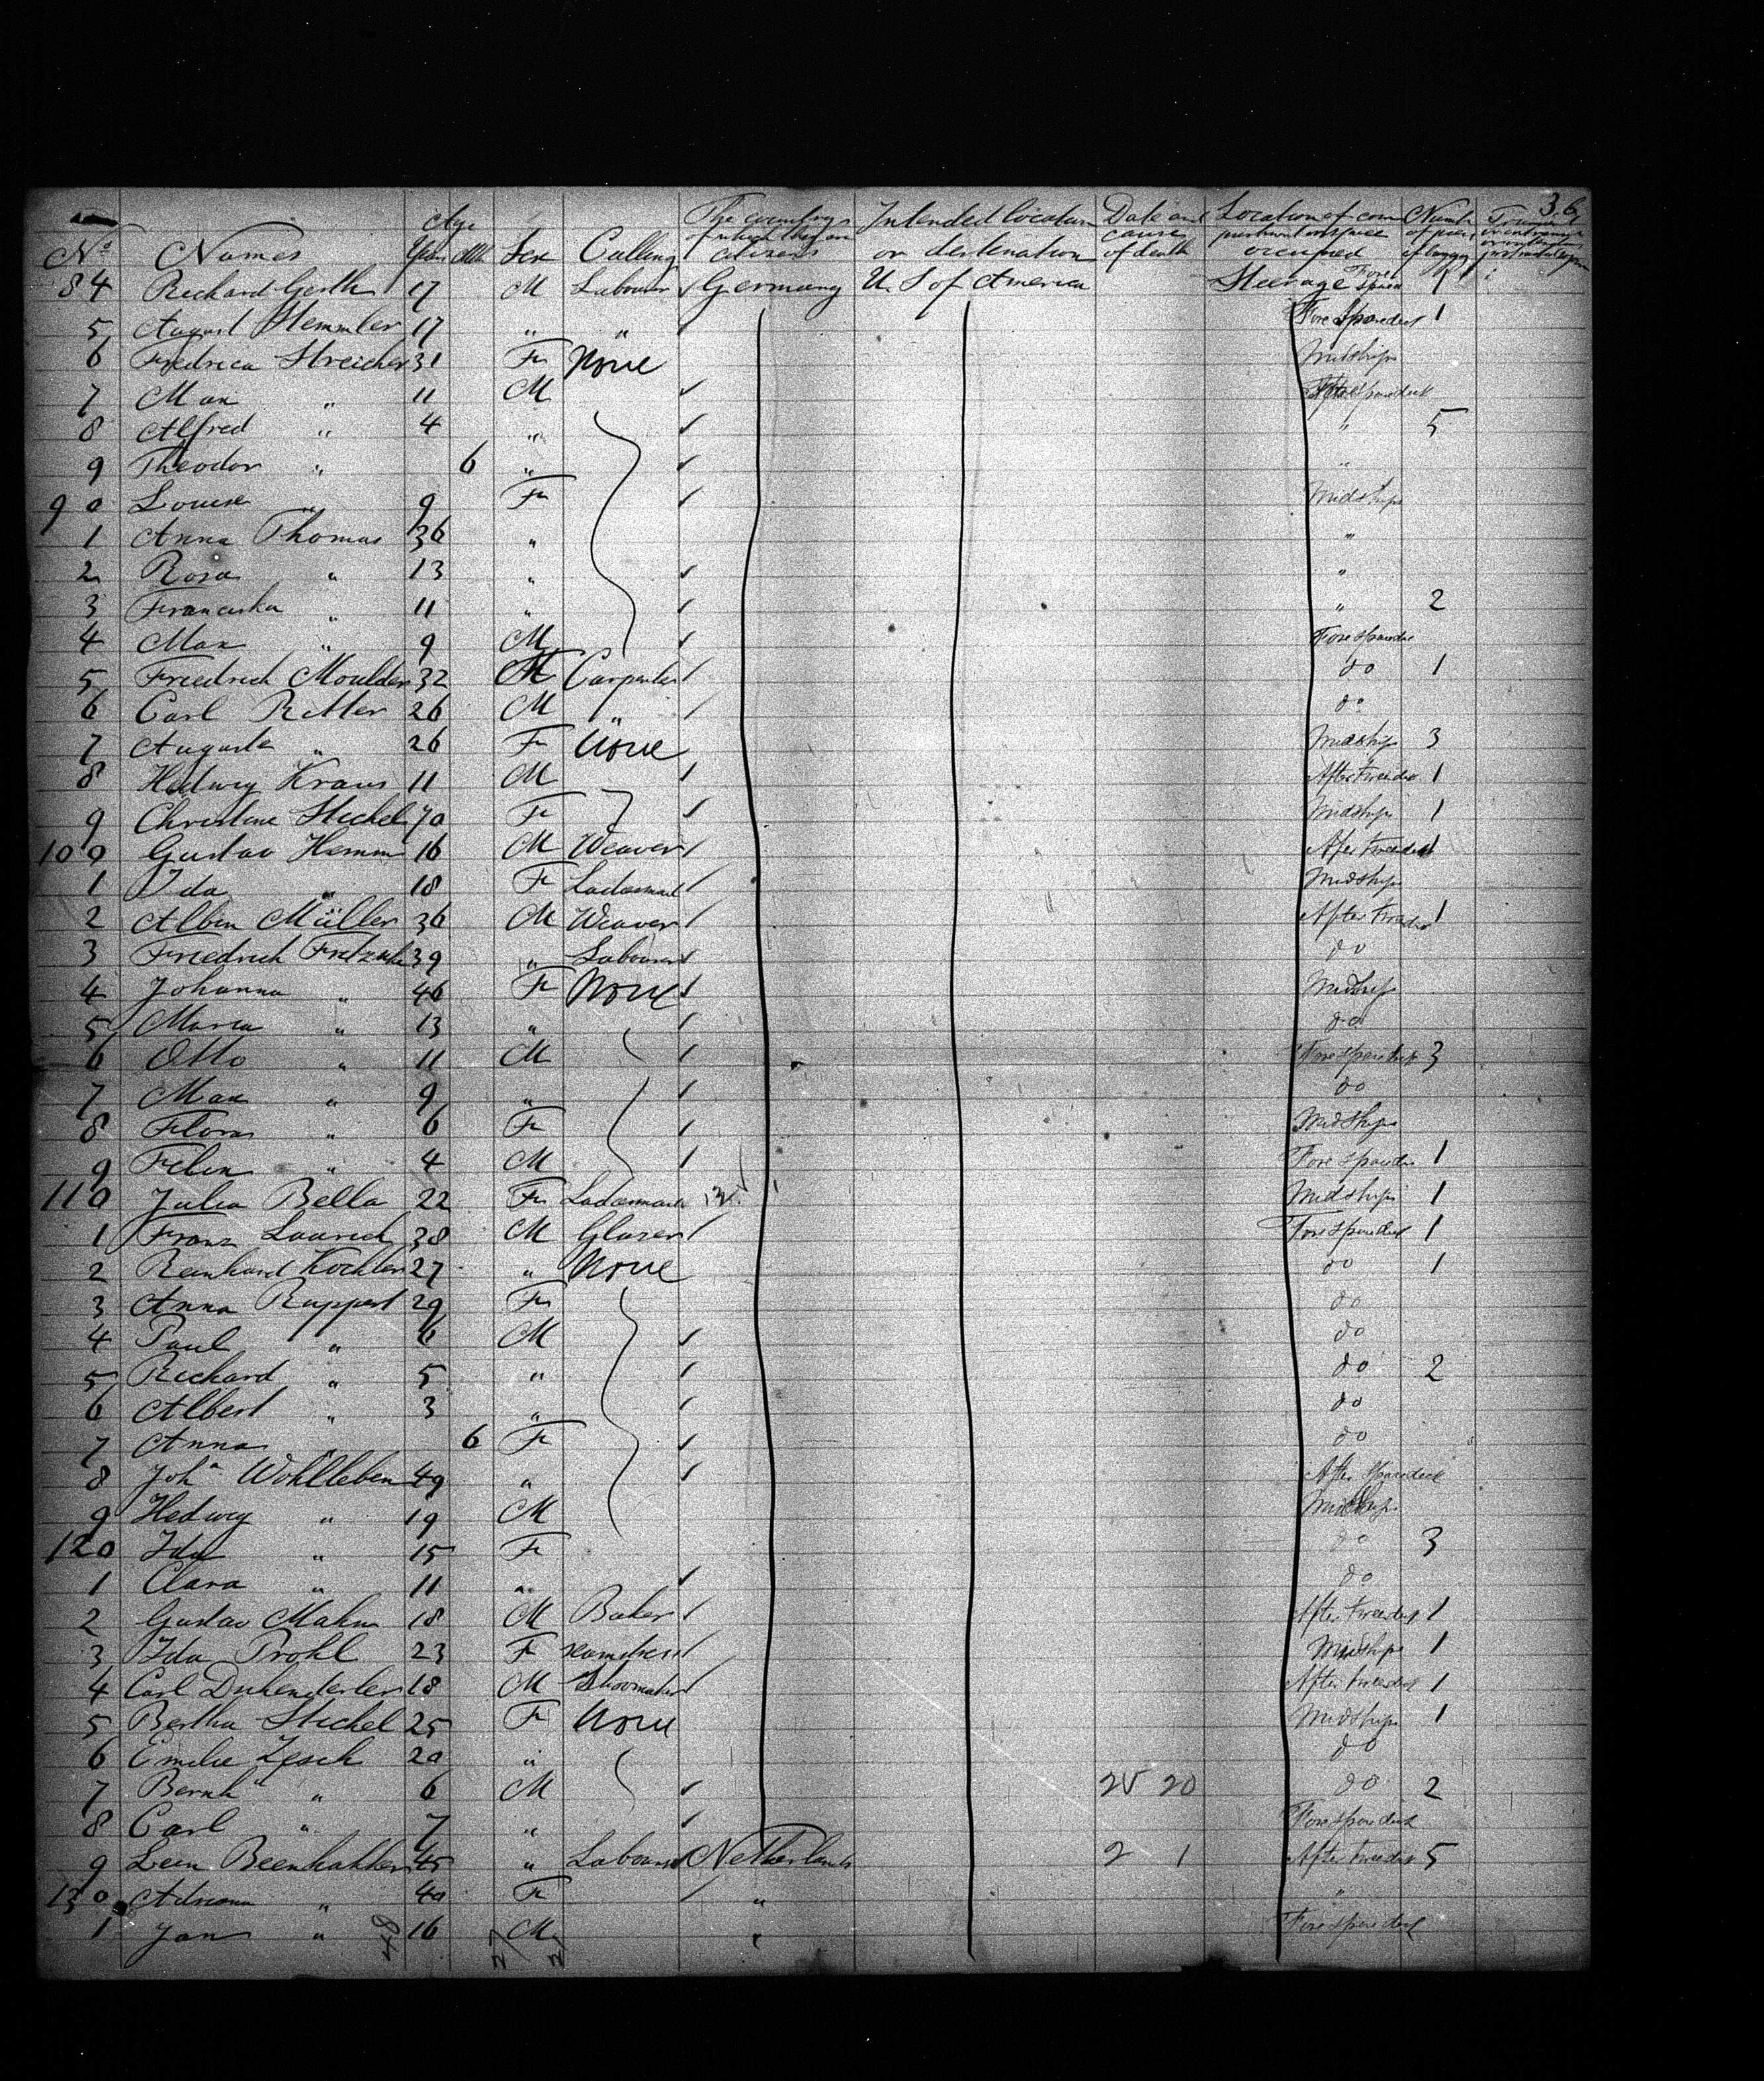 36
Age The country Intended location Date and Location of com Number
No Names Years Mth Sex Calling of which they are citizens or destination cause of death partment or space occupied of pieces of baggage
84 Richard Gerth 17 M Labourer Germany U S of America Steerage Fore 1
5 August Hemmler 17 " " Fore spardeck 1
6 Fredrica Streicher 31 F None Midships
7 Max " 11 M After spardeck
8 Alfred " 4 " " 5
9 Theodor " 6 " "
90 Louise " 9 F Midships
1 Anna Thomas 36 " "
2 Rosa " 13 " "
3 Franciska " 11 " " 2
4 Max " 9 M Fore spardeck
5 Friedrich Moulder 32 M Carpenter do 1
6 Carl Ritter 26 M " do
7 Auguste " 26 F None Midships 3
8 Hedwig Kraus 11 M After tweedeck 1
9 Christine Stechel 70 F Midships 1
100 Gustav Hemm 16 M Weaver After tweedeck 1
1 Ida " 18 F Midships
2 Albin Müller 36 M Weaver After tweedeck 1
3 Friedrich Fritzsche 39 " Labourer do
4 Johanna " 46 F None Midships
5 Maria " 13 " do
6 Otto " 11 M Fore spardeck 3
7 Max " 9 " do
8 Flora " 6 F Midships
9 Felix " 4 M Fore spardeck 1
110 Julia Bella 22 F Midships 1
1 Franz 38 M Glaser Fore spardeck 1
2 Reinhard Kochler 27 " None do 1
3 Anna Ruppert 29 F do
4 Paul " 6 M do
5 Richard " 5 " do 2
6 Albert " 3 " do
7 Anna " 6 F do
8 Joh Wohlleben 49 " After spardeck
9 Hedwig " 19 M Midships
120 Ida " 15 F do 3
1 Clara " 11 " do
2 Gustav Mahn 18 M Baker After tweedeck 1
3 Ida Prohl 23 F Midships 1
4 Carl 18 M Shoemaker After tweedeck 1
5 Bertha Stechel 25 F None Midships 1
6 Emilie Zesch 20 " do
7 Bernh " 6 M 20 do 2
8 Carl " 7 " Fore spardeck
9 Leen Beenhakker 45 " Labourer Netherlands 2 1 After tweedeck 5
130 Adriana " 40 F " "
1 Jan " 16 M " Fore spardeck
48 27